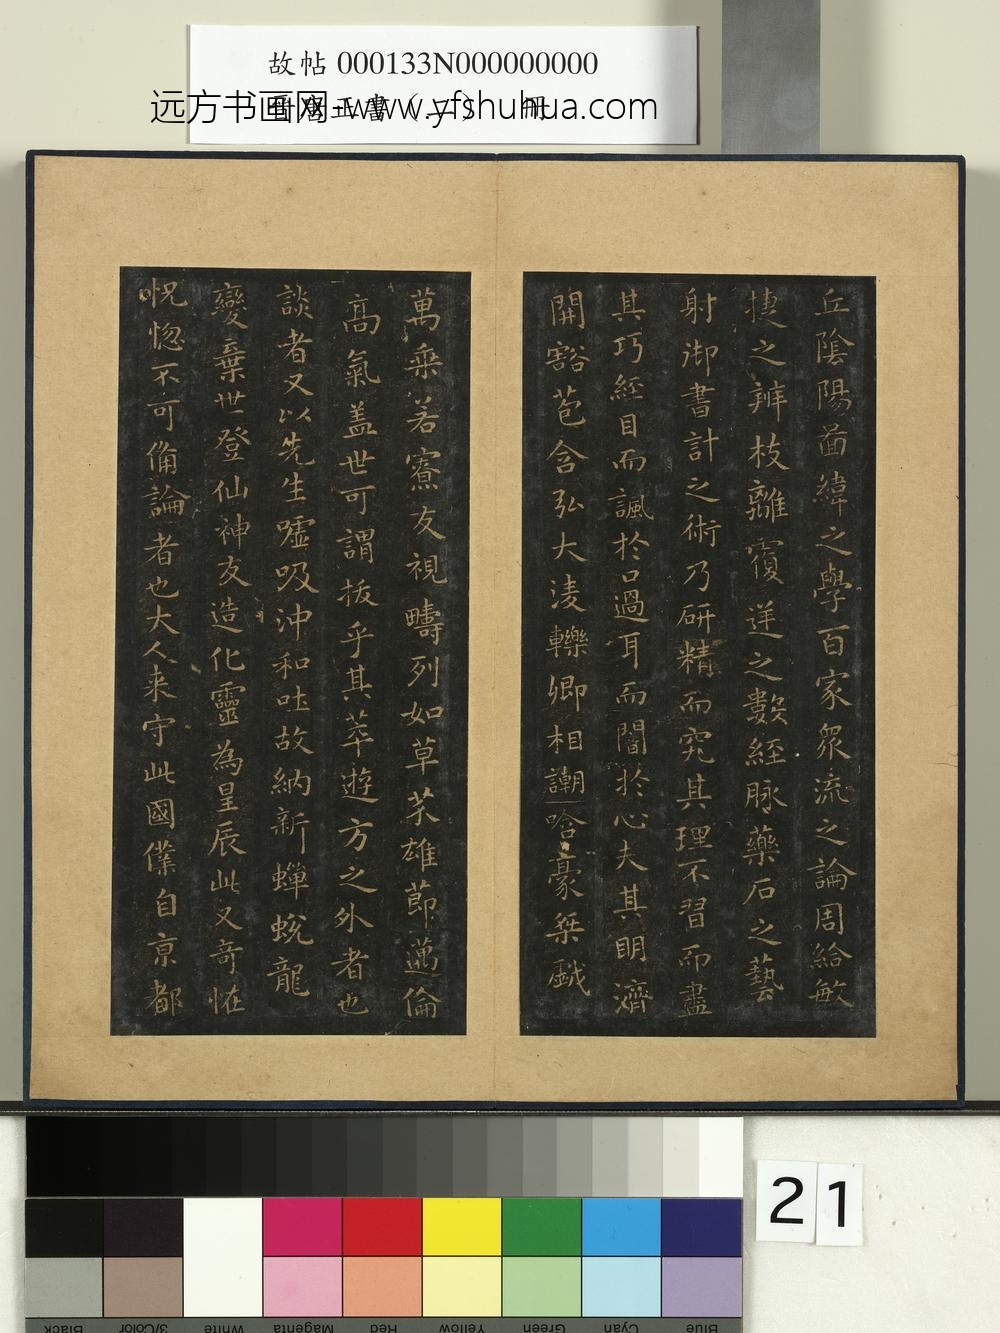 故帖 000133N000000000
远方书画网--www.yfshuhua.com
丘陰陽啚緯之學百家衆流之論周給敏
捷之辨枝離覆逆之數経脉藥石之藝
射御書計之術乃研精而究其理不習而盡
其巧経目而諷於口過耳而闇於心夫其明濟
開豁苞含弘大淩轢卿相謿哈豪桀戯
萬乘若寮友視疇列如草芥雄節邁倫
高氣盖世可謂拔乎其萃遊方之外者也
談者又以先生嘘吸沖和吐故納新蟬蛻龍
變棄世登仙神友造化靈為星辰此又奇恠
怳惚不可備論者也大人来守此國僕自京都
21
Black
3/Color
White
Magenta
Red
Yellow
Green
Cyan
Blue